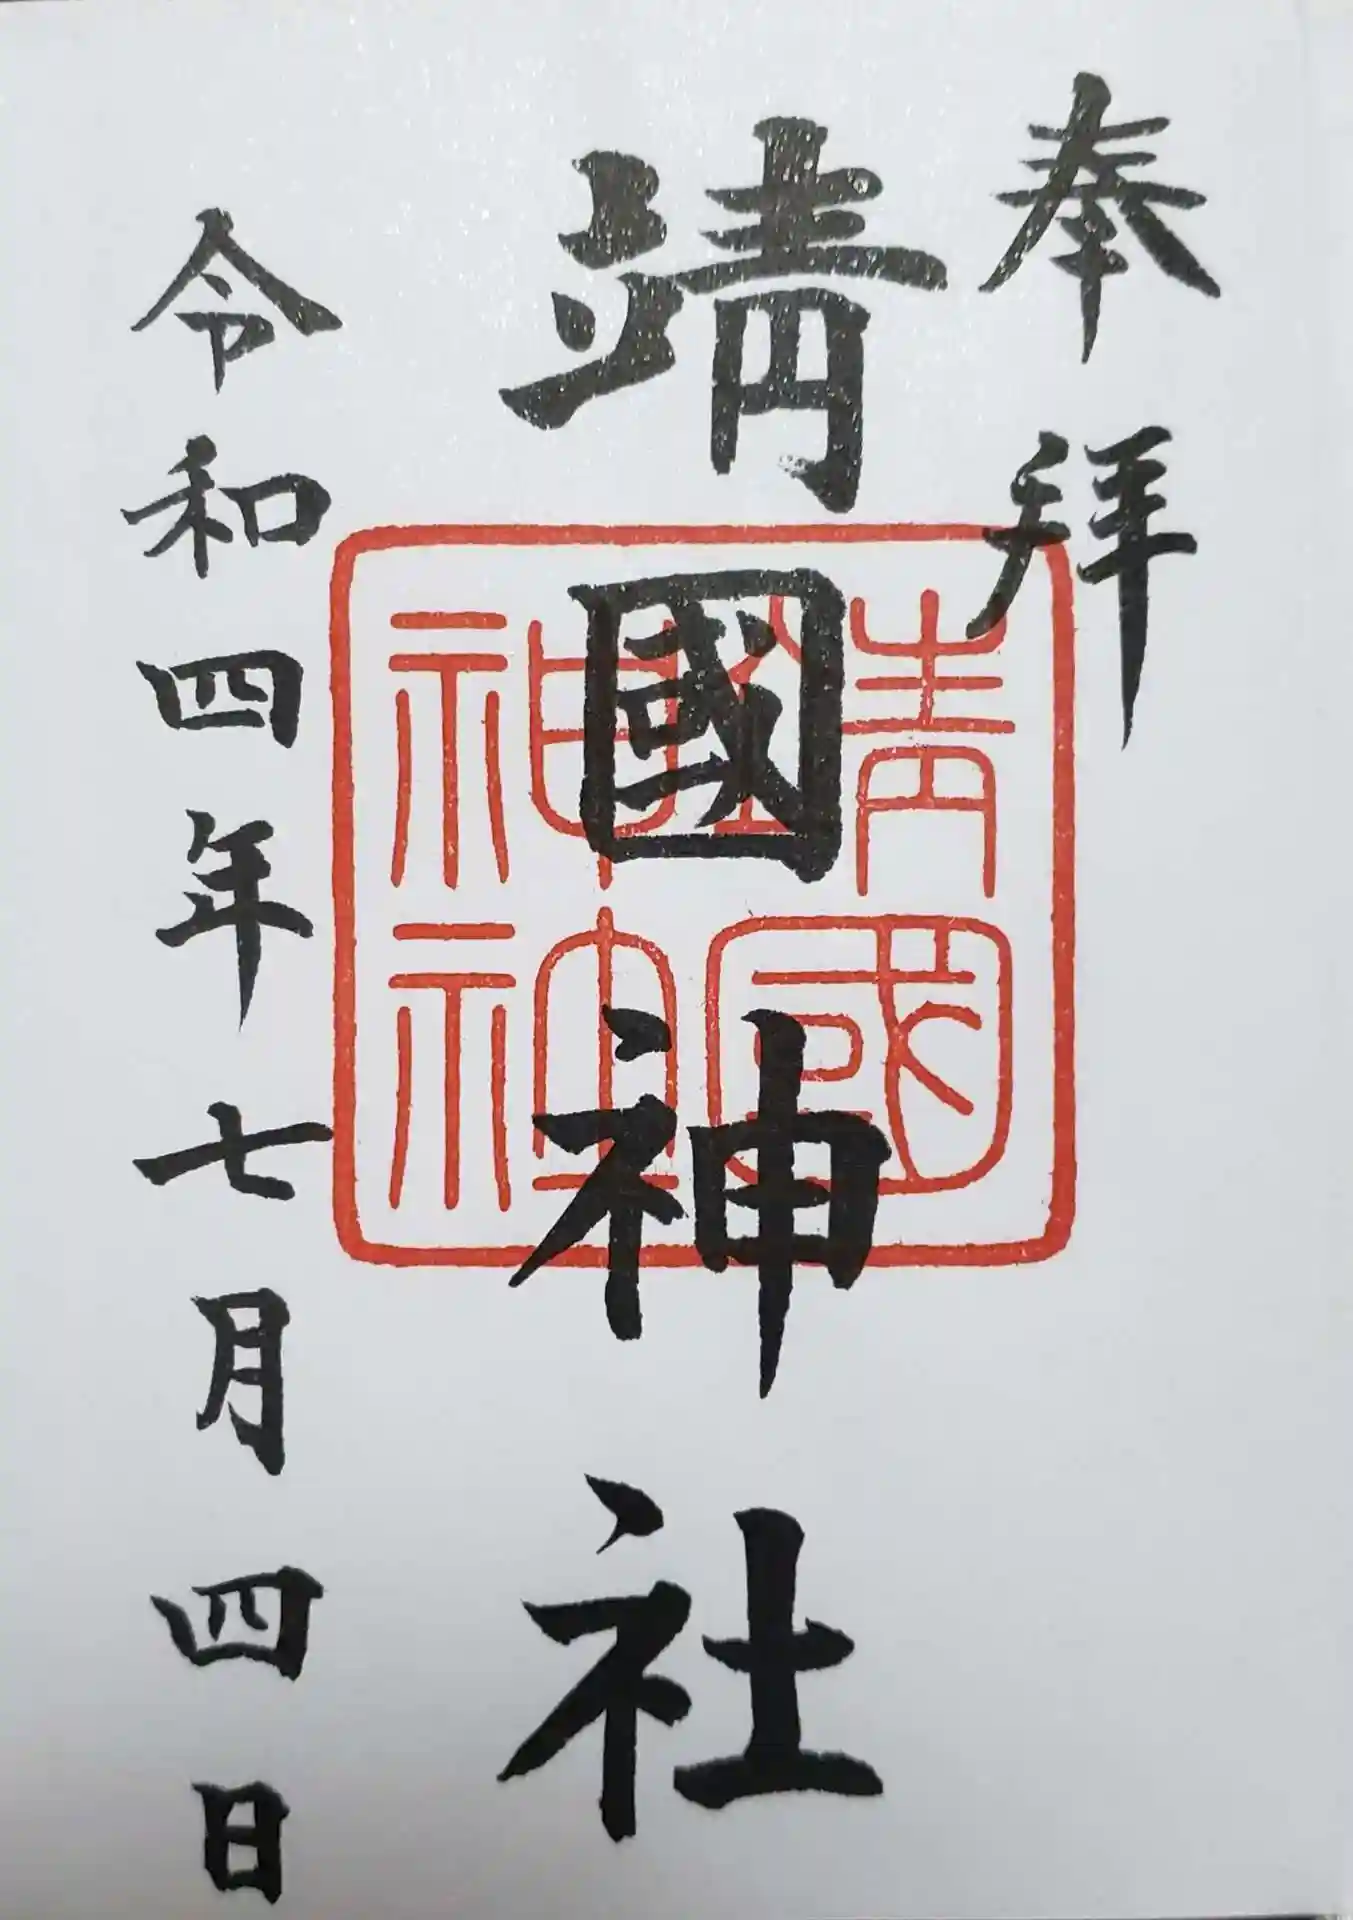 奉拜
靖國神社
靖國
神社
令和四年七月四日